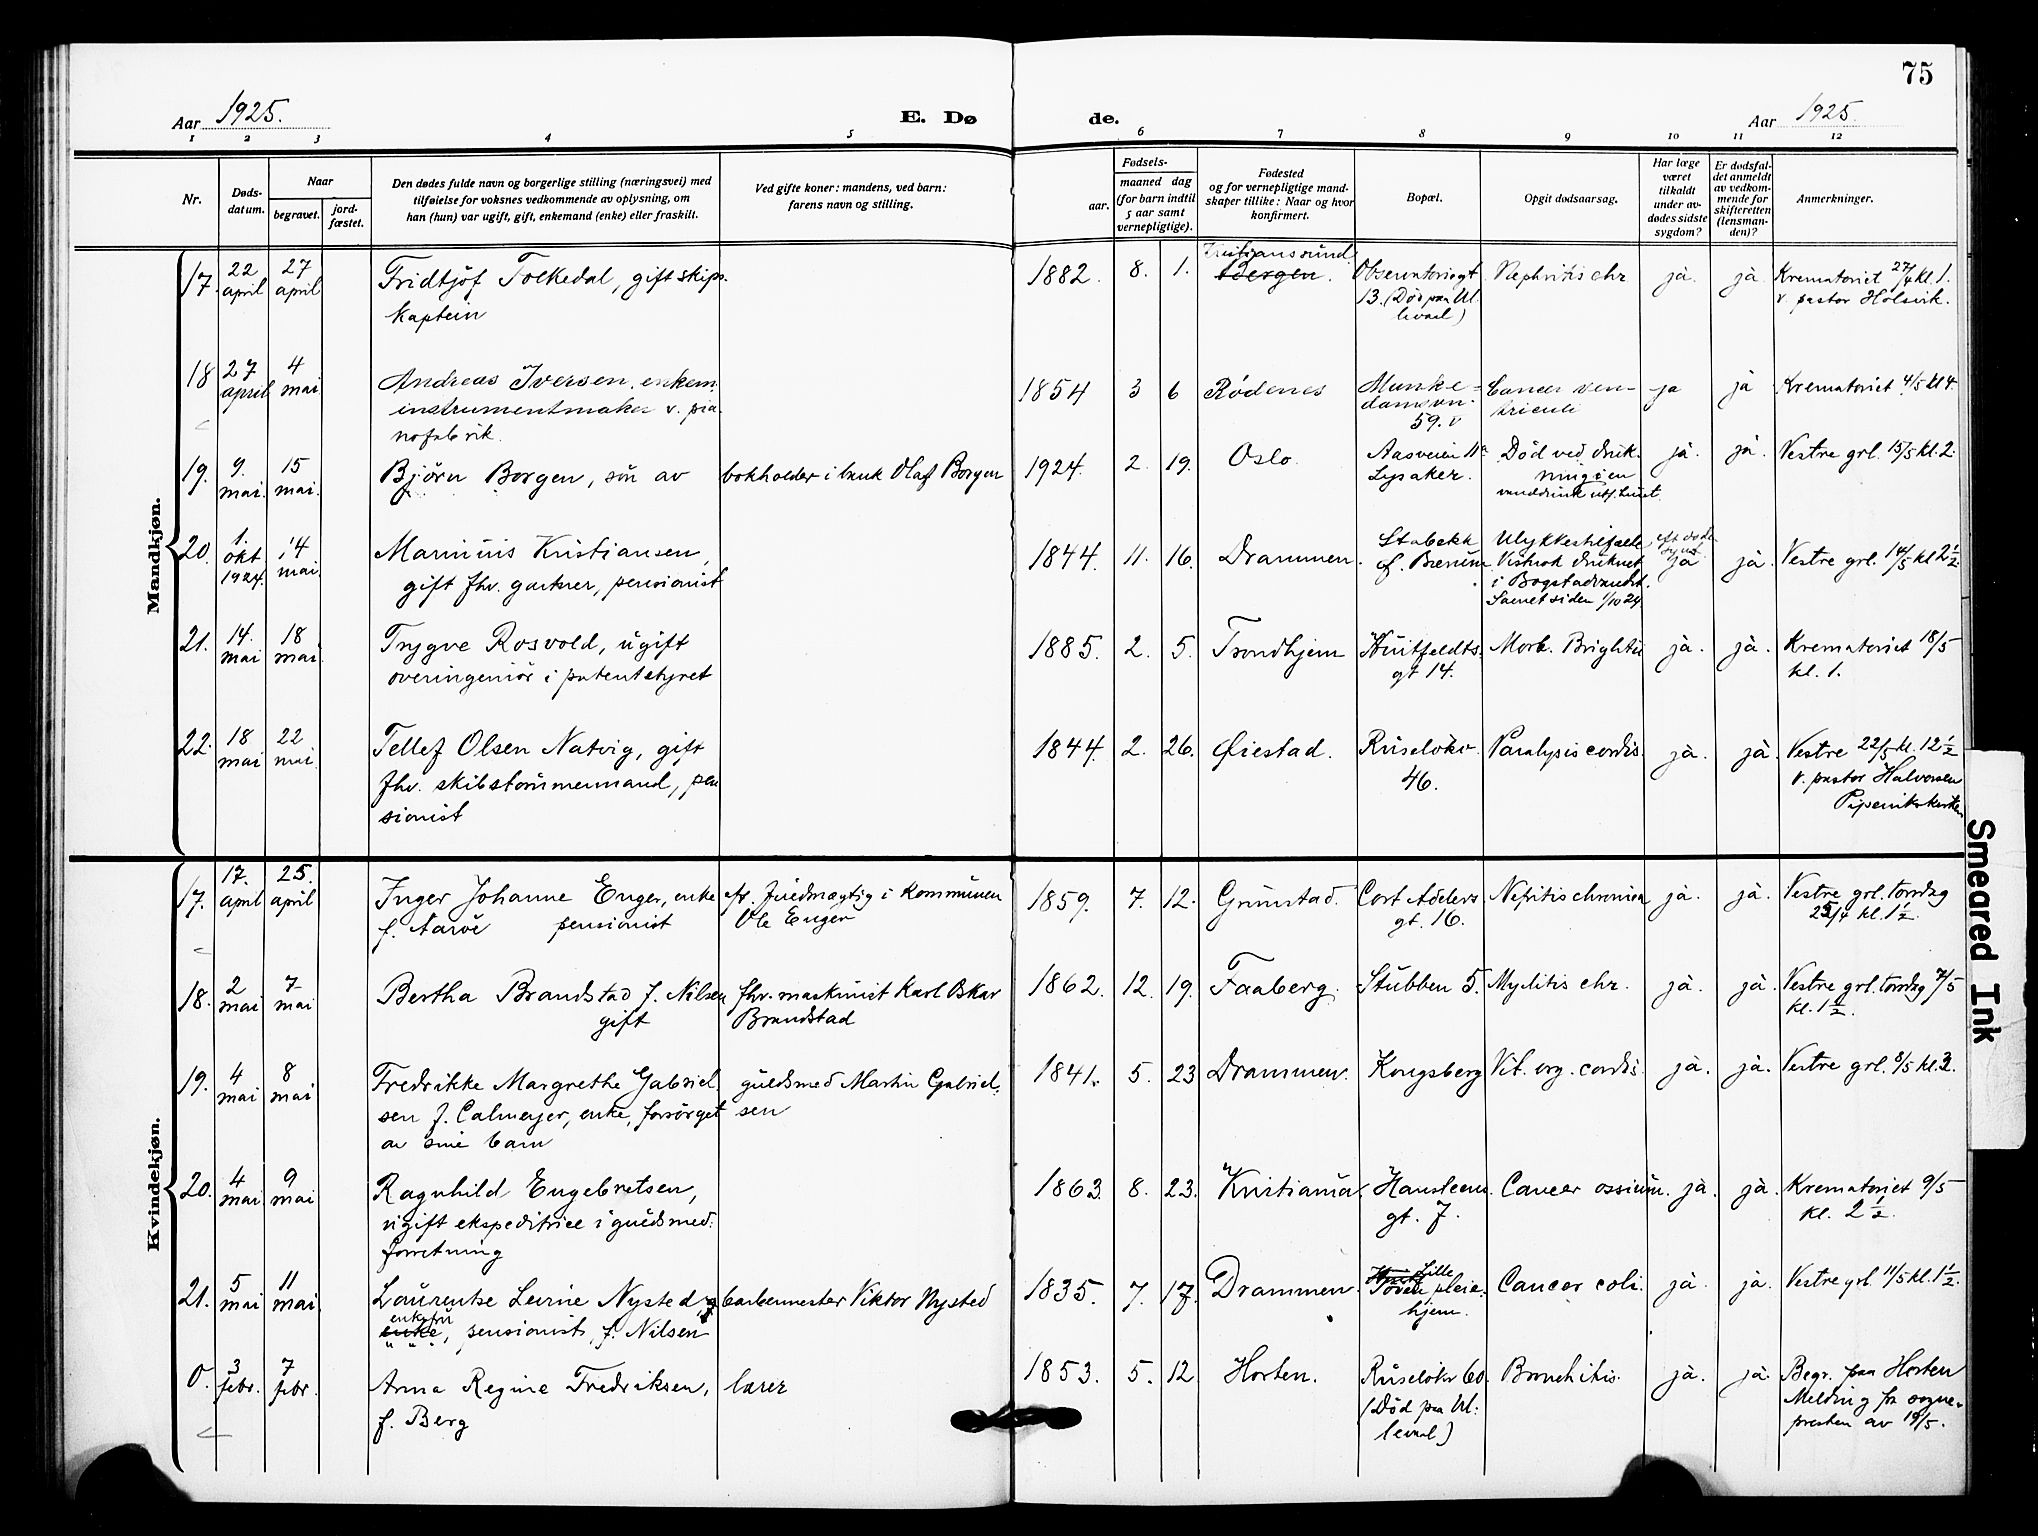 75
Aar 1925.
E. Dø
de.
Aar 1925.
1 2 3 4 5 6 7 8 9 10 11 12
Nr.
Døds-
datum.
Naar
begravet.
jord-
fæstet.
Den dødes fulde navn og borgerlige stilling (næringsvei) med
tilføielse for voksnes vedkommende av oplysning, om
han (hun) var ugift, gift, enkemand (enke) eller fraskilt.
Ved gifte koner: mandens, ved barn:
farens navn og stilling.
Fødsels-
aar.
maaned dag
(for barn indtil
5 aar samt
vernepligtige).
Fødested
og for vernepligtige mand-
skaper tillike: Naar og hvor
konfirmert.
Bopæl.
Opgit dødsaarsag.
Har læge
været
tilkaldt
under av-
dødes sidste
sygdom?
Er dødsfal-
det anmeldt
av vedkom-
mende for
skifteretten
(lensman-
den)?
Anmerkninger.
Mandkjøn.
17. 22 april 27 april
Fridtjóf Folkedal, gift skips-
kaptein
1882. 8. 1.
Kristianssund
Bergen.
Observatoriegt
13. (Død paa Ul
levaal)
Nephritis chr
ja. ja.
Krematoriet 27/4 kl. 1.
v. pastor Holsvik.
18 27 april 4 mai
Andreas Iversen, enkem.
instrumentmaker v. pia
nofabrik.
1854 3 6 Rödenes
Munke-
damsvn.
59. v
Cancer ven-
triculi
ja ja
Krematoriet 4/5 kl 4.
19. 9. mai. 15 mai.
Bjørn Borgen, sön av
bokholder i bank Olaf Borgen
1924. 2. 19. Oslo.
Aasveien 11a
Lysaker.
Død ved druk-
ning i en
vanddunk utf. huset.
ja. ja.
Vestre grl. 15/5 kl. 2.
20. 1. okt 1924. 14 mai.
Marinius Kristiansen,
gift fhv. gartner, pensionist
1844. 11. 16. Drammen.
Stabekk
Bærum
Ulykkestilfælde
Vistnok druknet
i Bogstadvandet.
Savnet siden 1/10 24.
ja ja.
Vestre grl. 14/5 kl 2 1/2.
21. 14. mai 18 mai.
Trygve Rosvold, ugift
overingeniör i patentstyret
1885. 2. 5. Trondhjem
Huitfeldts-
gt 14.
Morb. Brightii
ja. ja.
Krematoriet 18/5
kl. 1.
22. 18 mai 22 mai.
Tellef Olsen Natvig, gift
fhv. skibstömmermand, pen
sionist
1844. 2. 26. Øiestad.
Ruselökv.
46.
Paralysis cordis.
ja. ja.
Vestre 22/5 kl. 12 1/2
v. pastor Halvorsen
Pipervikskirken
Kvindekjøn.
17. 17. april 25. april
Inger Johanne Enger, enke
f. Aaröe pensionist
ef. fuldmægtig i kommunen
Ole Enger
1859. 7. 12. Grimstad.
Cort Adelers
gt. 16.
Nefritis chronica
ja. ja.
Vestre grl. torsdag
25/4 kl. 1 1/2.
18. 2 mai 7 mai
Bertha Brandstad f. Nilsen
gift
fhv. maskinist Karl Oskar
Brandstad
1862. 12. 19. Faaberg.
Stubben 5.
Myelitis chr.
ja. ja.
Vestre grl. torsdag 7/5
kl. 1 1/2.
19. 4 mai 8 mai
Fredrikke Margrethe Gabriel
sen f. Calmeyer, enke, forsörget
av sine barn
guldsmed Martin Gabriel-
sen
1841. 5. 23 Drammen.
Kongsberg
Vit. org. cordis.
ja. ja.
Vestre grl. 8/5 kl. 3.
20. 4 mai. 9 mai
Ragnhild Engebretsen,
ugift ekspeditrice i guldsmed-
forretning
1863. 8. 23. Kristiania.
Hansteens
gt. 7.
Cancer ossium.
ja. ja.
Krematoriet 9/5
kl. 2 1/2.
21. 5 mai 11 mai.
Laurentse Levine Nysted
enkefru
enke, pensionist, f. Nilsen
barbermester Viktor Nysted
1835. 7. 17. Drammen.
Lille
Tøien pleie-
hjem.
Cancer coli.
ja. ja.
Vestre grl. 11/5 kl. 1 1/2.
0. 3 febr. 7 febr.
Anna Regine Fredriksen,
f. Berg
lærer
1853. 5. 12 Horten.
Ruselökv 60.
(Død paa Ul-
levaal)
Bronchitis.
ja. ja.
Begr. paa Horten
Melding fra sogne-
presten av 19/5.
Smeared Ink